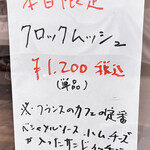 本日限定
クロックムッシュ
¥1,200 税込
(単品)
※フランスのカフェの定番
ベシャメルソース、ハム、チーズ
が入ったサンドイッチ